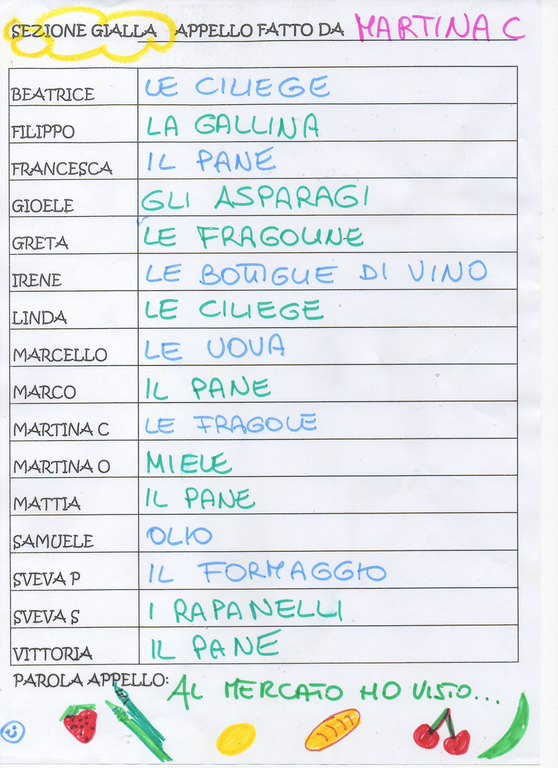 SEZIONE GIALLA APPELLO FATTO DA MARTINA C
BEATRICE LE CILIEGE
FILIPPO LA GALLINA
FRANCESCA IL PANE
GIOELE GLI ASPARAGI
GRETA LE FRAGOLINE
IRENE LE BOTTIGLIE DI VINO
LINDA LE CILIEGE
MARCELLO LE UOVA
MARCO IL PANE
MARTINA C LE FRAGOLE
MARTINA O MIELE
MATTIA IL PANE
SAMUELE OLIO
SVEVA P IL FORMAGGIO
SVEVA S I RAPANELLI
VITTORIA IL PANE
PAROLA APPELLO: AL MERCATO HO VISTO...